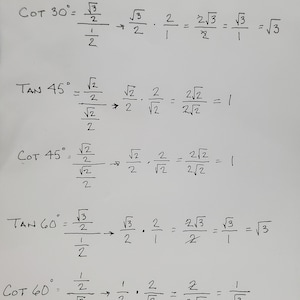 COT 30° = (√3/2)/(1/2) → √3/2 · 2/1 = 2√3/2 = √3/1 = √3
TAN 45° = (√2/2)/(√2/2) → √2/2 · 2/√2 = 2√2/2√2 = 1
COT 45° = (√2/2)/(√2/2) → √2/2 · 2/√2 = 2√2/2√2 = 1
TAN 60° = (√3/2)/(1/2) → √3/2 · 2/1 = 2√3/2 = √3/1 = √3
COT 60° = (1/2)/ → 1/2 · 2/ = 2/ = 1/